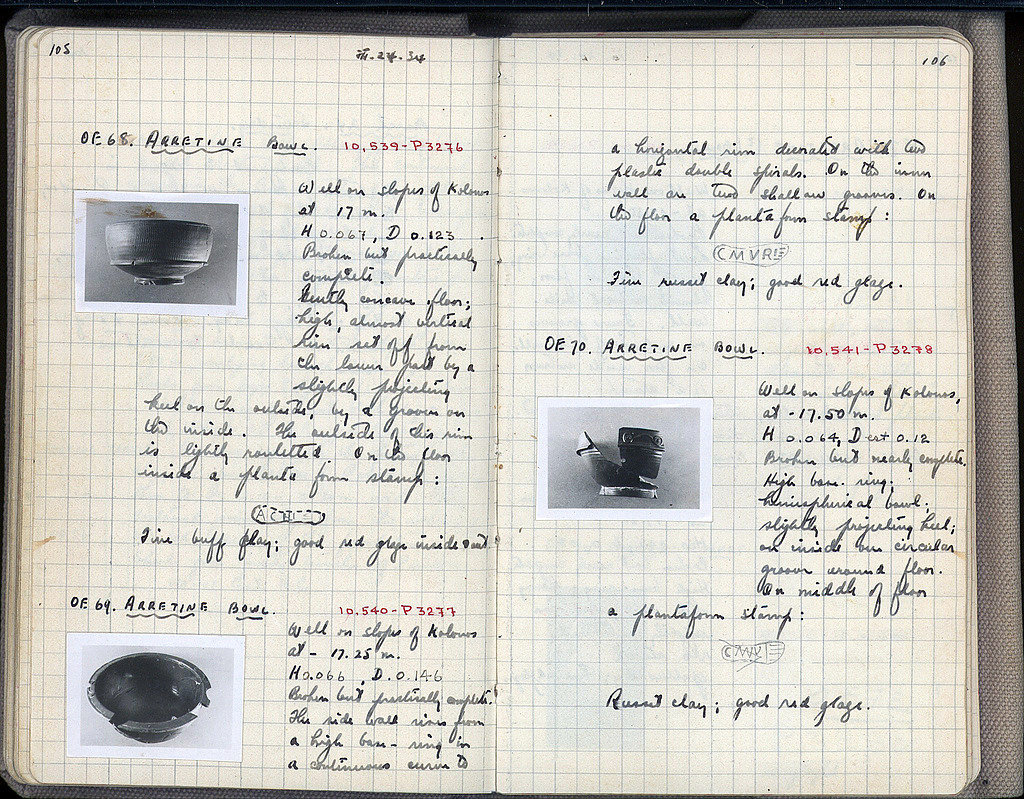 105
III.24.34
OE 68. ARRETINE BOWL. 10,539-P3276
Well on slopes of Kolonos
at 17 m.
H 0.067, D 0.123.
Broken but practically
complete.
Gently concave floor;
high, almost vertical
rim set off from
the lower part by a
slightly projecting
keel on the outside, by a groove on
the inside. The outside of this rim
is lightly rouletted. On the floor
inside a planta form stamp:
Fine buff clay; good red glaze inside & out.
OE 69. ARRETINE BOWL. 10,540-P3277
Well on slopes of Kolonos
at - 17.25 m.
H 0.066, D. 0.146
Broken but practically complete.
The side wall rises from
a high base-ring in
a continuous curve to
106
a horizontal rim decorated with two
plastic double spirals. On the inner
wall are two shallow grooves. On
the floor a plantaform stamp:
CMVRE
Fine russet clay; good red glaze.
OE 70. ARRETINE BOWL. 10,541-P3278
Well on slopes of Kolonos,
at -17.50 m.
H 0.064, D est 0.12
Broken but nearly complete.
High base ring;
hemispherical bowl;
slightly projecting keel;
on inside one circular
groove around floor.
On middle of floor
a plantaform stamp:
Russet clay; good red glaze.